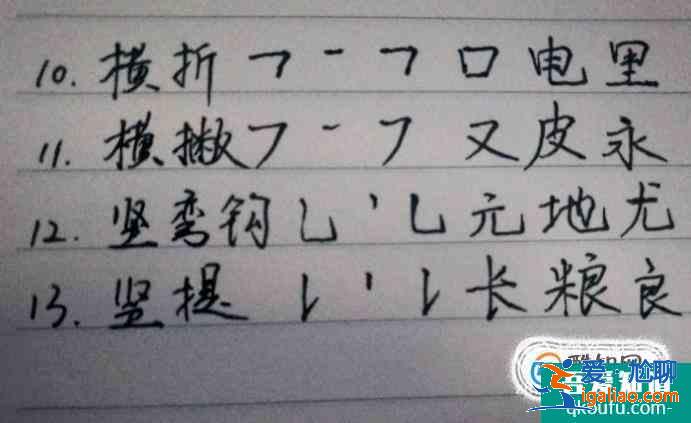 10. 横折 ㇕ 一 ㇕ 口 电 里
11. 横撇 ㇇ 一 ㇇ 又 皮 永
12. 竖弯钩 乚 丨 乚 元 地 尤
13. 竖提 ㇙ 丨 ㇙ 长 粮 良
爱尬聊
igaliao.com